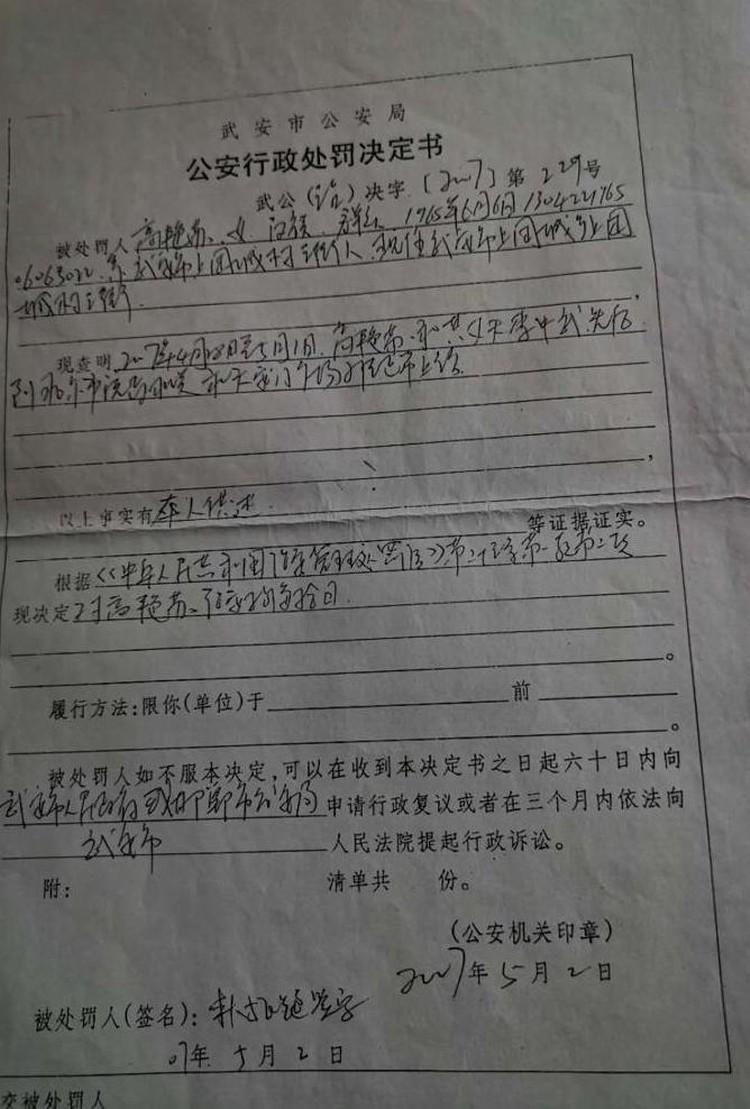 武安市公安局
公安行政处罚决定书
武公(治)决字〔2007〕第229号
被处罚人 高艳芬、女 汉族 1965年6月6日 130421765
06063022 系武安市上团城村 人 现住武安市上团城乡上团
城村
现查明 2007年4月 日至5月1日,高艳芬 和其丈夫李 武先后
到 和天安门广场 上访
,
以上事实有 本人供述 等证据证实。
根据《中华人民共和国治安管理处罚法》第二十 条第一款第二项
现决定 对高艳芬、行政拘留拾日
。
履行方法:限你(单位)于 前
。
被处罚人如不服本决定,可以在收到本决定书之日起六十日内向
武安市人民政府或邯郸市公安局 申请行政复议或者在三个月内依法向
武安市 人民法院提起行政诉讼。
附: 清单共 份。
(公安机关印章)
2007年5月2日
被处罚人(签名): 签字
07年5月2日
交被处罚人